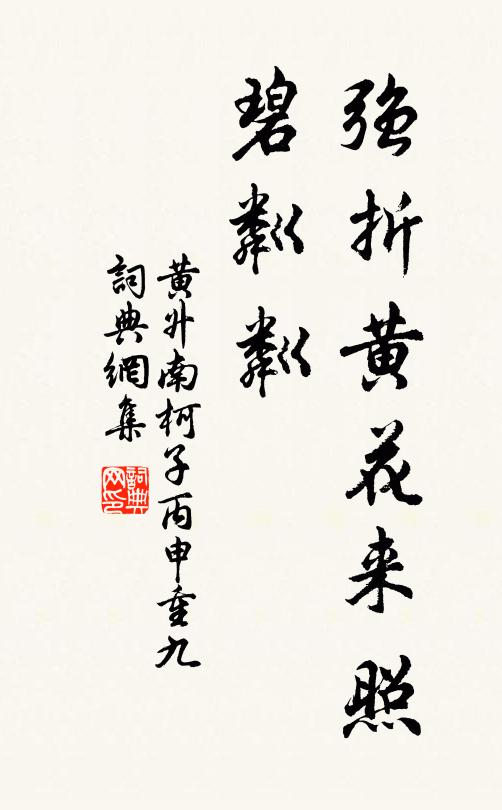 强折黄花来照
碧粼粼
黄升南柯子丙申重九
詞典網集
詞典
网印